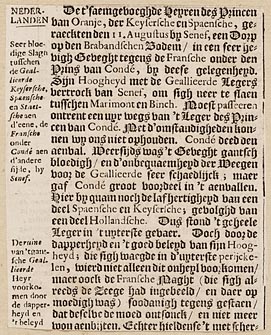 NEDER-
LANDEN
Seer bloe-
dige Slagh
tusschen
de Geal-
lieerde
Keysersche,
Spaensche
en Staet-
sche aen
d'eene, de
Fransche
onder
Condé aen
d'andere
sijde, by
Senef.
De ruine
van 't gant-
sche Geal-
lieerde
Heyr
voorko-
men door
de dapper-
heyd en
't beleyd
De t'saemgevoeghde Heyren des Prince
van Oranje, der Keysersche en Spaensche, ge-
raeckten den 11. Augustus by Senef, een Dorp
op den Brabandschen Bodem/ in een seer he-
vigh Gevegt tegens de Fransche onder den
Prins van Condé, by dese gelegenheyd.
Sijn Hoogheyd met de Geallieerde Legers
vertrock van Senef, om sigh neer te slaen
tusschen Marimont en Binch. Moest passeeren
ontrent een uyr wegs van 't Leger des Princen
van Condé. Met d'omstandigheden kon-
nen wy ons niet ophouden. Condé deed den
aenval. Weersijds was 't Gevegt gantsch
bloedigh/ en d'onbequaemheyd der Weegen
voor de Geallieerde seer schaedlijck; maer
gaf Condé groot voordeel in 't aenvallen.
Hier by quam noch de lafhertigheyd van een
deel Spaensche en Keysersche; gevolghd van
een deel Hollandsche. Dus stond 't geheele
Leger in 't uyterste gevaer. Doch door de
dapperheyd en 't goed beleyd van sijn Hoog-
heyd; die sigh waegde in d'uyterste perijcke-
len; wierd niet alleen dit onheyl voorkomen/
maer oock de Fransche Maght (die sigh al-
reeds de Zeege had ingebeeld/ en daer op
moedigh was) soodanigh tegens gestaen/
dat deselve de moed ontsonck/ en niet meer
won aenbijten. Echter hielden se 't met scher-